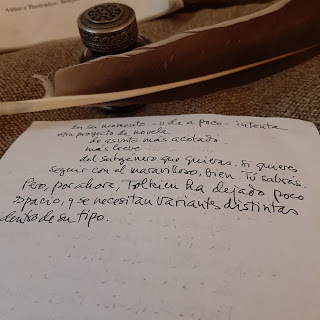 Autor e Ilustrador:
En su momento - o de a poco - intenta
otro proyecto de novela
de asunto más acotado
más breve
del subgénero que quieras. Si quieres
seguir con el maravilloso, bien. Tú sabrás.
Pero, por ahora, Tolkien ha dejado poco
espacio, y se necesitan variantes distintas
dentro de su tipo.